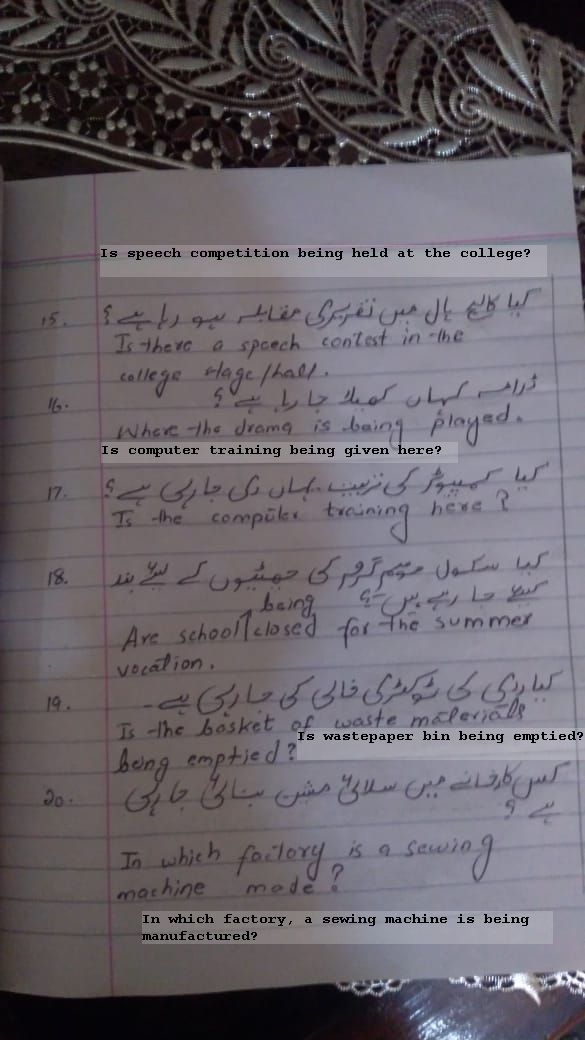 Is speech competition being held at the college?
15. کیا کالج ہال میں تقریری مقابلہ ہو رہا ہے ؟
Is there a speech contest in the
college stage/hall.
16. ڈرامہ کہاں کھیلا جا رہا ہے ؟
Where the drama is being played.
Is computer training being given here?
17. کیا کمپیوٹر کی تربیت یہاں دی جا رہی ہے ؟
Is the computer training here ?
18. کیا سکول موسم گرم کی چھٹیوں کے لیئے بند
کیئے جا رہے ہیں ؟
being
Are school closed for the summer
vocation.
19. کیا ردی کی ٹوکڑی خالی کی جا رہی ہے -
Is the basket of waste materials
being emptied?
Is wastepaper bin being emptied?
20. کس کارخانے میں سلائی مشین بنائی جا رہی
ہے ؟
In which factory is a sewing
machine made?
In which factory, a sewing machine is being
manufactured?